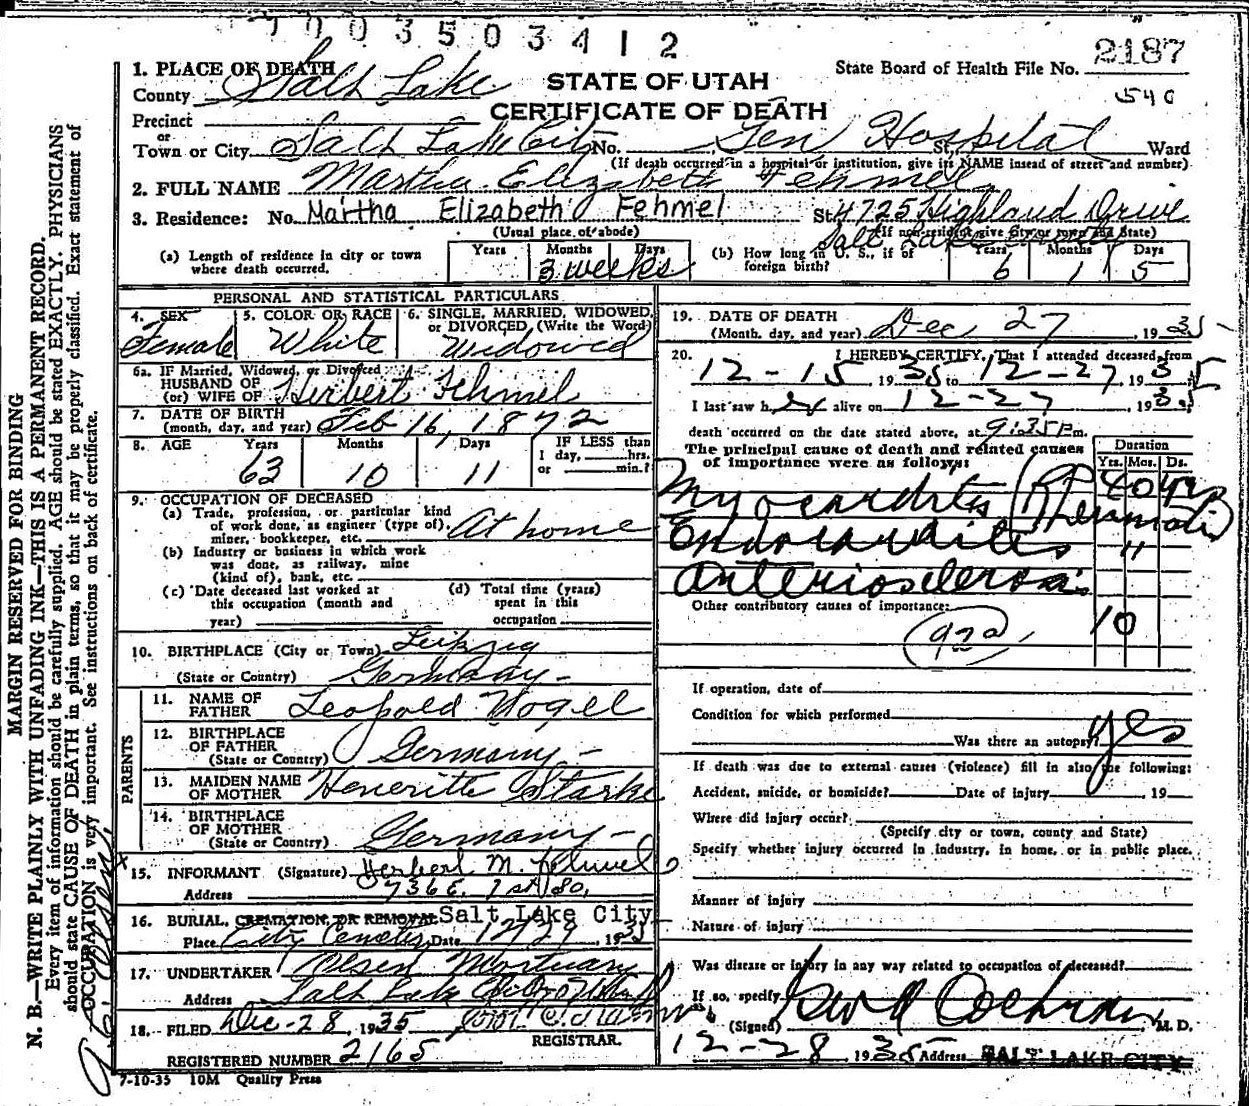 7 0 0 3 5 0 3 4 1 2
2187
1. PLACE OF DEATH
STATE OF UTAH
State Board of Health File No.
540
County Salt Lake
CERTIFICATE OF DEATH
Precinct
or
Town or City Salt Lake City No. Gen Hospital St., Ward
(If death occurred in a hospital or institution, give its NAME insead of street and number)
2. FULL NAME Martha Elizabeth Fehmel
3. Residence: No. Martha Elizabeth Fehmel St. 4725 Highland Drive
(Usual place of abode) (If non-resident give City or town and State)
Salt Lake
(a) Length of residence in city or town where death occurred. Years Months Days
3 weeks
(b) How long in U. S., if of foreign birth? Years Months Days
6 1 5
PERSONAL AND STATISTICAL PARTICULARS
4. SEX 5. COLOR OR RACE 6. SINGLE, MARRIED, WIDOWED, or DIVORCED, (Write the Word)
Female White Widowed
6a. IF Married, Widowed, or Divorced
HUSBAND OF
(or) WIFE OF Herbert Fehmel
7. DATE OF BIRTH
(month, day, and year) Feb 16, 1872
8. AGE Years Months Days IF LESS than
1 day, hrs.
or min.?
63 10 11
9. OCCUPATION OF DECEASED
(a) Trade, profession, or particular kind
of work done, as engineer (type of),
miner, bookkeeper, etc. At home
(b) Industry or business in which work
was done, as railway, mine
(kind of), bank, etc.
(c) Date deceased last worked at
this occupation (month and
year)
(d) Total time (years)
spent in this
occupation
10. BIRTHPLACE (City or Town) Leipzig
(State or Country) Germany
PARENTS
11. NAME OF
FATHER Leopold Vogel
12. BIRTHPLACE
OF FATHER
(State or Country) Germany
13. MAIDEN NAME
OF MOTHER Heneritte Starke
14. BIRTHPLACE
OF MOTHER
(State or Country) Germany
15. INFORMANT (Signature) Herbert M. Fehmel
Address 736 E. 1st So.
16. BURIAL, CREMATION, OR REMOVAL Salt Lake City
Place City Cemetery Date 12/29, 1935
17. UNDERTAKER Olsen Mortuary
Address Salt Lake City Utah
18. FILED Dec-28, 1935
REGISTRAR.
REGISTERED NUMBER 2165
7-10-35 10M Quality Press
19. DATE OF DEATH
(Month, day, and year) Dec 27, 1935
20. I HEREBY CERTIFY, That I attended deceased from
12-15 1935 to 12-27, 1935
I last saw her alive on 12-27, 1935
death occurred on the date stated above, at 9:35 Pm.
The principal cause of death and related causes
of importance were as follows:
Duration
Yrs. Mos. Ds.
Myocarditis (Rheumatic) 40 yrs
Endocarditis "
Arteriosclerosis
Other contributory causes of importance:
92a 10
If operation, date of
Condition for which performed
Was there an autopsy? yes
If death was due to external causes (violence) fill in also the following:
Accident, suicide, or homicide? Date of injury , 19
Where did injury occur?
(Specify city or town, county and State)
Specify whether injury occurred in industry, in home, or in public place.
Manner of injury
Nature of injury
Was disease or injury in any way related to occupation of deceased?
If so, specify
(Signed) Cochran, M. D.
12-28, 1935 Address SALT LAKE CITY
MARGIN RESERVED FOR BINDING
N. B.—WRITE PLAINLY WITH UNFADING INK—THIS IS A PERMANENT RECORD.
Every item of information should be carefully supplied. AGE should be stated EXACTLY. PHYSICIANS
should state CAUSE OF DEATH in plain terms, so that it may be properly classified. Exact statement of
OCCUPATION is very important. See instructions on back of certificate.